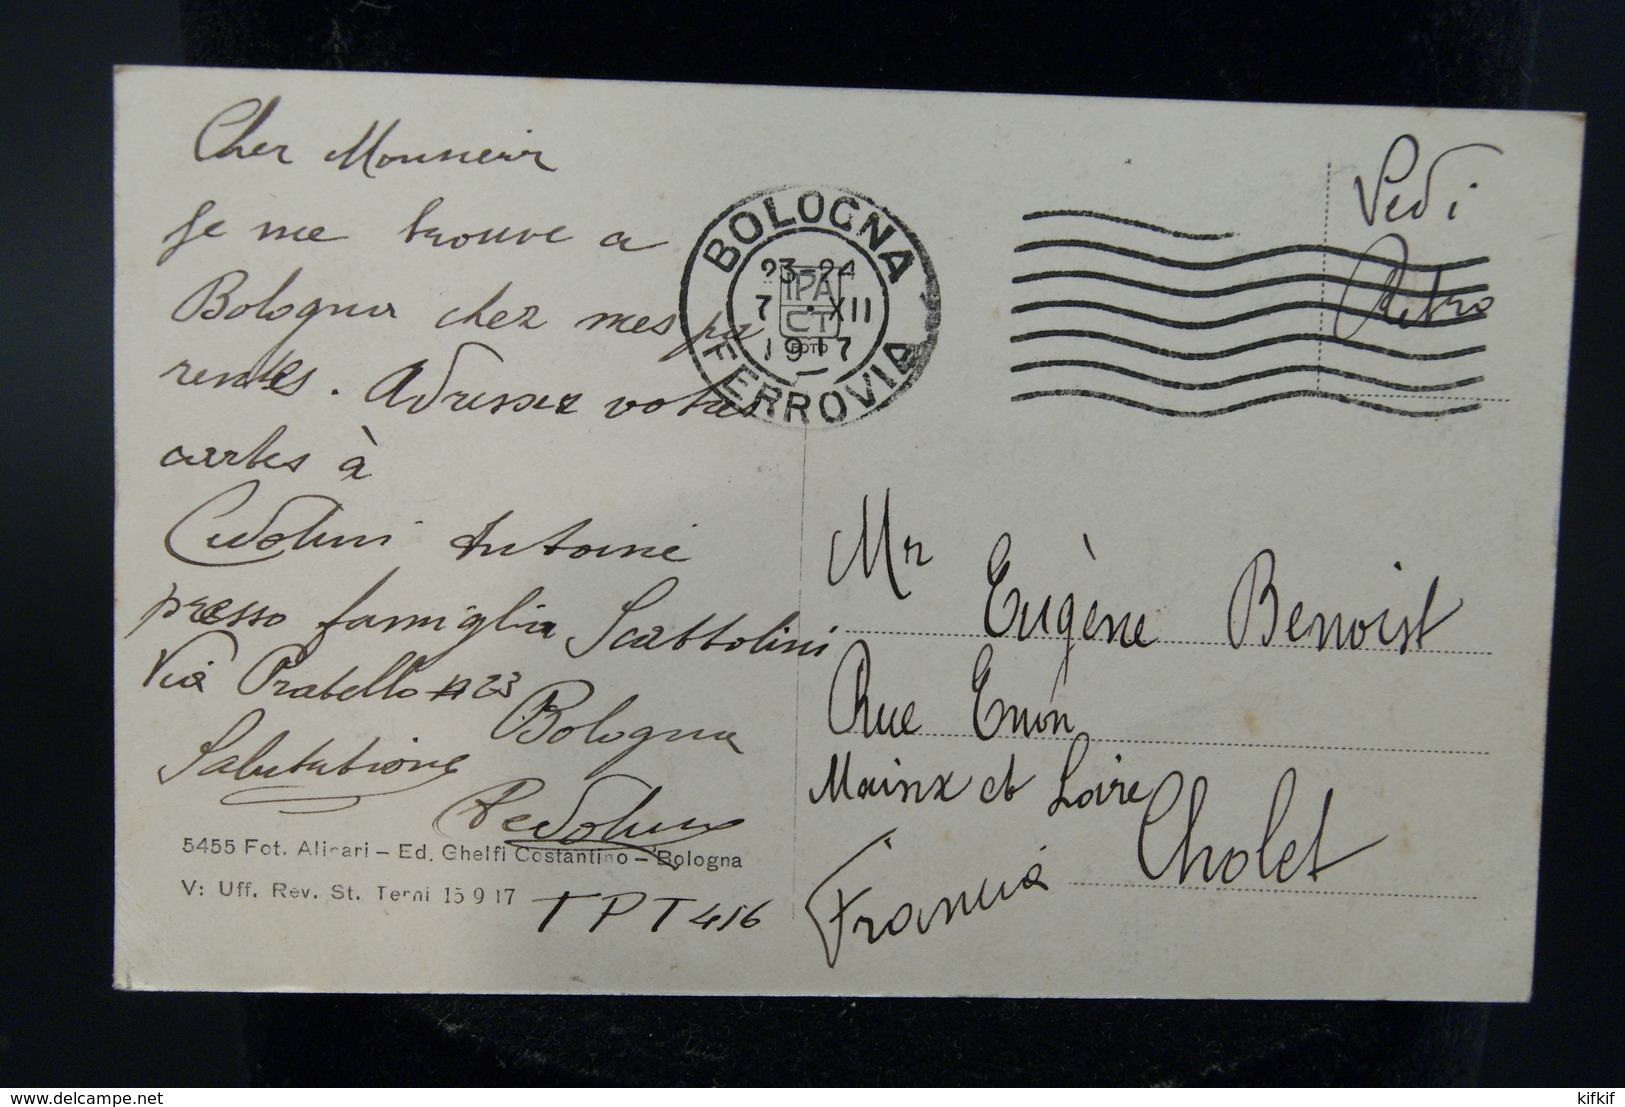 Cher Monsieur
Je me trouve a
Bologna chez mes pa
rentes. Adressez votres
cartes à
Antoine
presso famiglia Scattolini
Via Pratello N 23
Bologna
Salutations
5455 Fot. Alinari – Ed. Ghelfi Costantino – Bologna
V: Uff. Rev. St. Terni 15 9 17
T P T 416
BOLOGNA
23-24
7 · XII
1917
FERROVIA
Vedi
Retro
Mr Eugène Benoist
Rue Enon
Mainx et Loire
Cholet
Francia
delcampe.net
kifkif